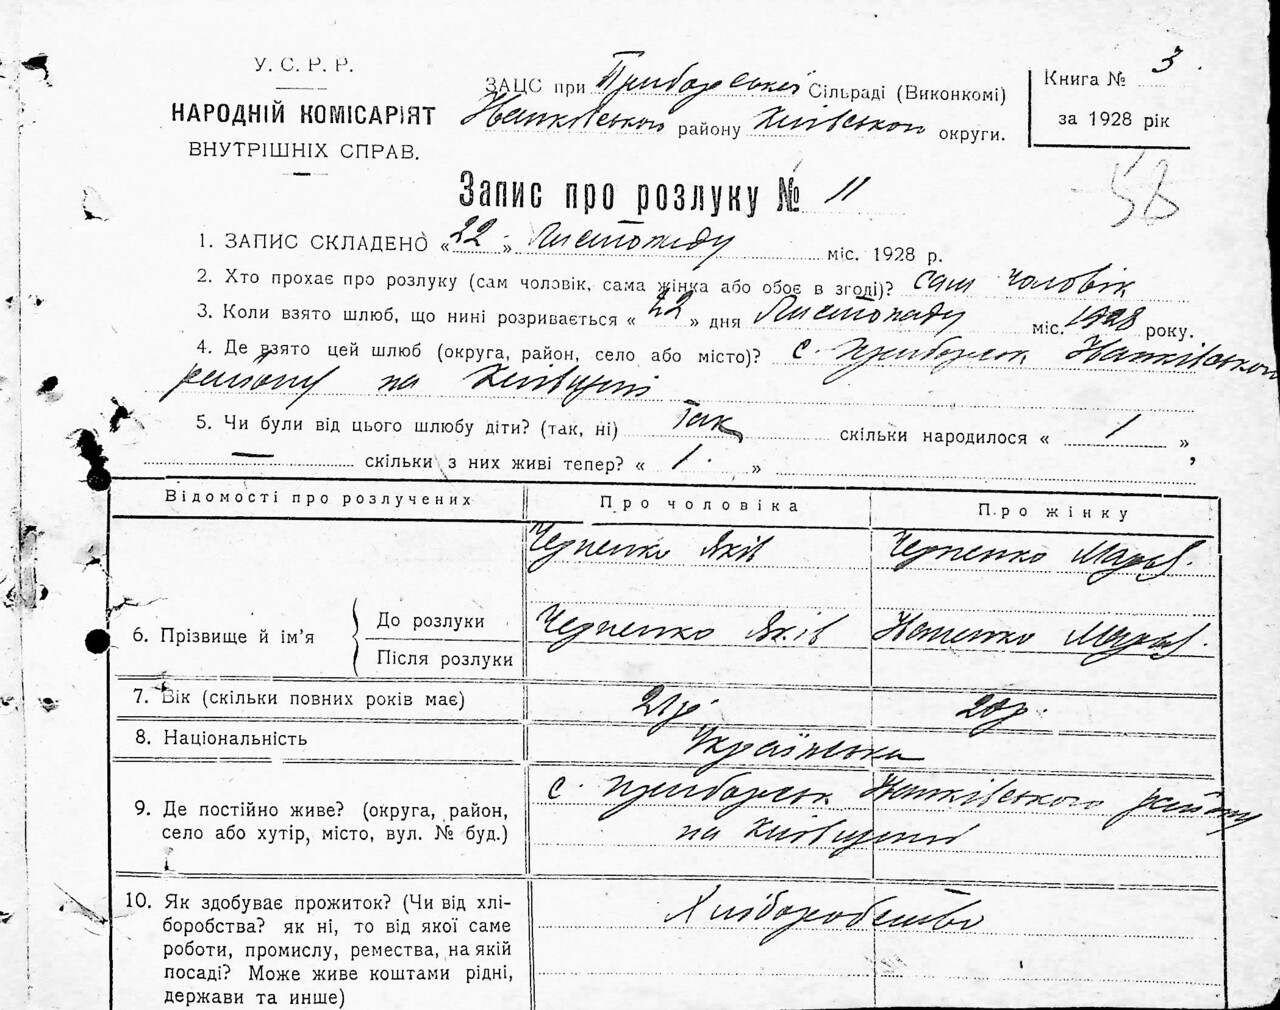 У. С. Р. Р.
НАРОДНІЙ КОМІСАРІЯТ
ВНУТРІШНІХ СПРАВ.
ЗАЦС при Приборській Сільраді (Виконкомі)
району Київського округи.
Книга № 3
за 1928 рік
58
Запис про розлуку № 11
1. ЗАПИС СКЛАДЕНО «22» Листопаду міс. 1928 р.
2. Хто прохає про розлуку (сам чоловік, сама жінка або обоє в згоді)? сам чоловік
3. Коли взято шлюб, що нині розривається «22» дня Листопаду міс. 1928 року.
4. Де взято цей шлюб (округа, район, село або місто)? с. Приборськ
району на Київщині
5. Чи були від цього шлюбу діти? (так, ні) Так скільки народилося « 1 »
— скільки з них живі тепер? « 1. » ,
Відомості про розлучених Про чоловіка Про жінку
6. Прізвище й ім’я
До розлуки
Яків
Після розлуки
Яків
7. Вік (скільки повних років має) 21р. 20р.
8. Національність Українська
9. Де постійно живе? (округа, район, село або хутір, місто, вул. № буд.)
с. Приборськ району
на Київщині
10. Як здобуває прожиток? (Чи від хлі-
боробства? як ні, то від якої саме
роботи, промислу, ремества, на якій
посаді? Може живе коштами рідні,
держави та инше)
Хліборобство